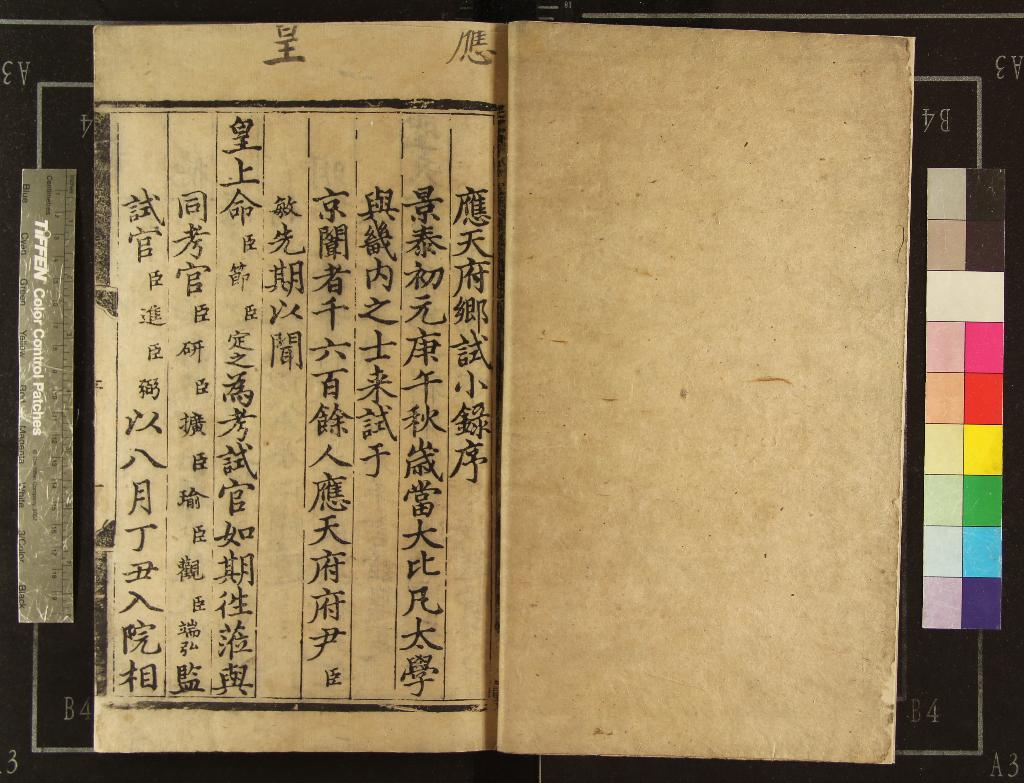 應
皇
應天府鄉試小錄序
景泰初元庚午秋歲當大比凡太學
與畿內之士来試于
京闈者千六百餘人應天府府尹臣
敏先期以聞
皇上命臣節臣定之為考試官如期徃蒞與
同考官臣研臣擴臣瑜臣觀臣端弘監
試官臣進臣弼以八月丁丑入院相
TIFFEN Color Control Patches
Centimetres
Blue
Cyan
Green
Yellow
Red
Magenta
White
3/Color
Black
A3
A3
B4
B4
B4
A3